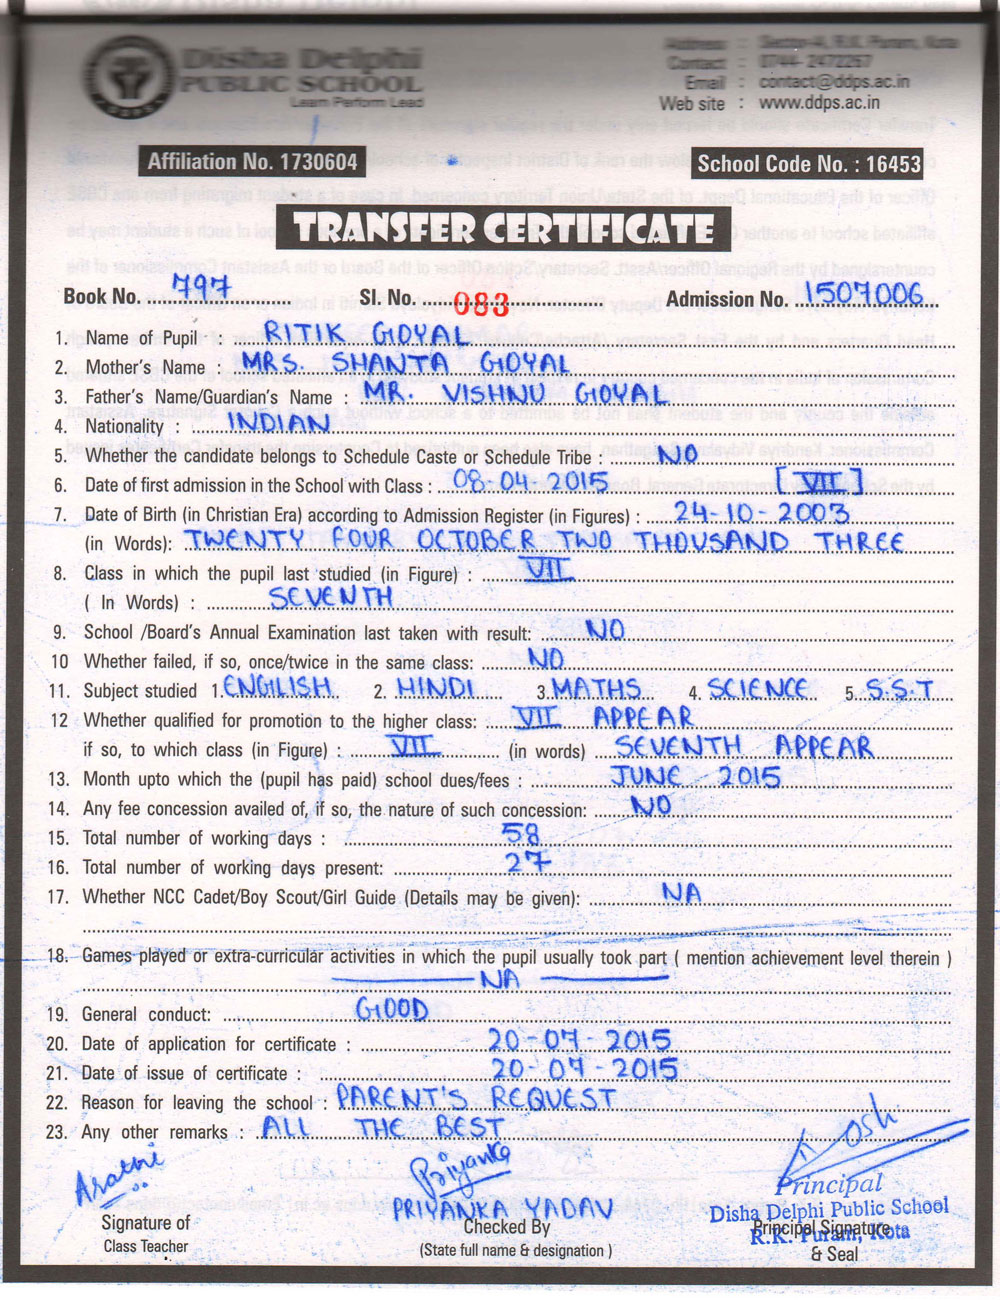 Disha Delphi
PUBLIC SCHOOL
Learn Perform Lead
Address : Sector-A, R.K. Puram, Kota
Contact : 0744- 2472267
Email : contact@ddps.ac.in
Web site : www.ddps.ac.in
Affiliation No. 1730604
School Code No. : 16453
TRANSFER CERTIFICATE
Book No. 797 Sl. No. 083 Admission No. 1507006
1. Name of Pupil : RITIK GOYAL
2. Mother's Name : MRS. SHANTA GOYAL
3. Father's Name/Guardian's Name : MR. VISHNU GOYAL
4. Nationality : INDIAN
5. Whether the candidate belongs to Schedule Caste or Schedule Tribe : NO
6. Date of first admission in the School with Class : 08-04-2015 [VII]
7. Date of Birth (in Christian Era) according to Admission Register (in Figures) : 24-10-2003
(in Words): TWENTY FOUR OCTOBER TWO THOUSAND THREE
8. Class in which the pupil last studied (in Figure) : VII
( In Words) : SEVENTH
9. School /Board's Annual Examination last taken with result: NO
10 Whether failed, if so, once/twice in the same class: NO
11. Subject studied 1. ENGLISH 2. HINDI 3. MATHS 4. SCIENCE 5. S.S.T
12 Whether qualified for promotion to the higher class: VII APPEAR
if so, to which class (in Figure) : VII (in words) SEVENTH APPEAR
13. Month upto which the (pupil has paid) school dues/fees : JUNE 2015
14. Any fee concession availed of, if so, the nature of such concession: NO
15. Total number of working days : 58
16. Total number of working days present: 27
17. Whether NCC Cadet/Boy Scout/Girl Guide (Details may be given): NA
18. Games played or extra-curricular activities in which the pupil usually took part ( mention achievement level therein )
NA
19. General conduct: GOOD
20. Date of application for certificate : 20-07-2015
21. Date of issue of certificate : 20-07-2015
22. Reason for leaving the school : PARENT'S REQUEST
23. Any other remarks : ALL THE BEST
Priyanka
PRIYANKA YADAV
Principal
Disha Delphi Public School
R.K. Puram, Kota
Signature of
Class Teacher
Checked By
(State full name & designation )
Principal Signature
& Seal